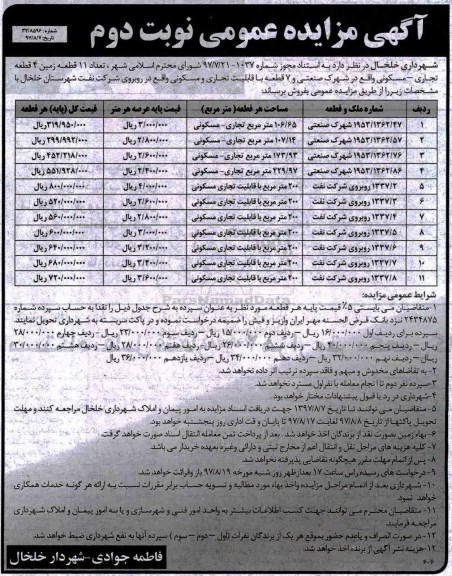 آگهی مزایده عمومی نوبت دوم
شماره: ۳۲/۸۵۹۶
تاریخ: ۹۷/۸/۷
شهرداری خلخال در نظر دارد به استناد مجوز شماره ۱۰۳۷-۹۷/۷/۲۱ شورای محترم اسلامی شهر، تعداد ۱۱ قطعه زمین ۴ قطعه
تجاری – مسکونی واقع در شهرک صنعتی و ۷ قطعه با قابلیت تجاری و مسکونی واقع در روبروی شرکت نفت شهرستان خلخال با
مشخصات زیر را از طریق مزایده عمومی بفروش برساند:
ردیف شماره ملک و قطعه مساحت هر قطعه (متر مربع) قیمت پایه عرصه هر متر قیمت کل (پایه) هر قطعه
۱ ۱۹۵۳/۱۳۶۲/۴۷ شهرک صنعتی ۱۰۶/۶۵ متر مربع تجاری- مسکونی ۳/۰۰۰/۰۰۰ ریال ۳۱۹/۹۵۰/۰۰۰ ریال
۲ ۱۹۵۳/۱۳۶۲/۵۷ شهرک صنعتی ۱۰۷/۱۴ متر مربع تجاری- مسکونی ۲/۸۰۰/۰۰۰ ریال ۲۹۹/۹۹۲/۰۰۰ ریال
۳ ۱۹۵۳/۱۳۶۲/۷۶ شهرک صنعتی ۱۷۳/۹۳ متر مربع تجاری- مسکونی ۲/۶۰۰/۰۰۰ ریال ۴۵۲/۲۱۸/۰۰۰ ریال
۴ ۱۹۵۳/۱۳۶۲/۸۶ شهرک صنعتی ۲۲۹/۹۷ متر مربع تجاری- مسکونی ۲/۴۰۰/۰۰۰ ریال ۵۵۱/۹۲۸/۰۰۰ ریال
۵ ۱۳۳۷/۲ روبروی شرکت نفت ۲۰۰ متر مربع با قابلیت تجاری مسکونی ۴/۰۰۰/۰۰۰ ریال ۸۰۰/۰۰۰/۰۰۰ ریال
۶ ۱۳۳۷/۳ روبروی شرکت نفت ۲۰۰ متر مربع با قابلیت تجاری مسکونی ۲/۶۰۰/۰۰۰ ریال ۵۲۰/۰۰۰/۰۰۰ ریال
۷ ۱۳۳۷/۴ روبروی شرکت نفت ۲۰۰ متر مربع با قابلیت تجاری مسکونی ۲/۸۰۰/۰۰۰ ریال ۵۶۰/۰۰۰/۰۰۰ ریال
۸ ۱۳۳۷/۵ روبروی شرکت نفت ۲۰۰ متر مربع با قابلیت تجاری مسکونی ۳/۰۰۰/۰۰۰ ریال ۶۰۰/۰۰۰/۰۰۰ ریال
۹ ۱۳۳۷/۶ روبروی شرکت نفت ۲۰۰ متر مربع با قابلیت تجاری مسکونی ۳/۲۰۰/۰۰۰ ریال ۶۴۰/۰۰۰/۰۰۰ ریال
۱۰ ۱۳۳۷/۷ روبروی شرکت نفت ۲۰۰ متر مربع با قابلیت تجاری مسکونی ۳/۴۰۰/۰۰۰ ریال ۶۸۰/۰۰۰/۰۰۰ ریال
۱۱ ۱۳۳۷/۸ روبروی شرکت نفت ۲۰۰ متر مربع با قابلیت تجاری مسکونی ۳/۶۰۰/۰۰۰ ریال ۷۲۰/۰۰۰/۰۰۰ ریال
شرایط عمومی مزایده:
۱- متقاضیان می بایستی ۵٪ قیمت پایه هر قطعه مورد نظر به عنوان سپرده به شرح جدول ذیل را نقدا به حساب سپرده شماره
۲۴۳۴۸۷۵ نزد بانک قرض الحسنه مهر ایران واریز و فیش را ضمیمه درخواست نموده و در پاکت سربسته به شهرداری تحویل نمایند
سپرده برای ردیف اول ۱۶/۰۰۰/۰۰۰ ریال – ردیف دوم ۱۵/۰۰۰/۰۰۰ ریال – ردیف سوم ۲۳/۰۰۰/۰۰۰ ریال – ردیف چهارم ۲۸/۰۰۰/۰۰۰
ریال – ردیف پنجم ۴۰/۰۰۰/۰۰۰ ریال – ردیف ششم ۲۶/۰۰۰/۰۰۰ ریال – ردیف هفتم ۲۸/۰۰۰/۰۰۰ ریال – ردیف هشتم ۳۰/۰۰۰/۰۰۰
ریال – ردیف نهم ۳۲/۰۰۰/۰۰۰ ریال – ردیف دهم ۳۴/۰۰۰/۰۰۰ ریال – ردیف یازدهم ۳۶/۰۰۰/۰۰۰ ریال
۲- به تقاضاهای مخدوش و مبهم و فاقد سپرده ترتیب اثر داده نخواهد شد.
۳- سپرده نفر دوم تا انجام معامله با نفر اول مسترد نخواهد شد.
۴- شهرداری در رد یا قبول پیشنهادات مختار خواهد بود.
۵- متقاضیان می توانند تا تاریخ ۱۳۹۷/۸/۷ جهت دریافت اسناد مزایده به امور پیمان و املاک شهرداری خلخال مراجعه کنند و مهلت
تحویل پاکتها از تاریخ ۹۷/۸/۸ لغایت ۹۷/۸/۱۷ تا پایان وقت اداری روز پنجشنبه خواهد بود.
۶- بهاء زمین بصورت نقد از برندگان اخذ خواهد شد. بعد از پرداخت ثمن معامله انتقال اسناد صورت خواهد گرفت.
۷- کلیه هزینه های مراحل نقل و انتقال اعم از مخارج ثبتی و دارائی و غیره بعهده خریدار می باشد.
۸- پس از اتمام مهلت مقرر هیچگونه تقاضایی پذیرفته نخواهد شد.
۹- درخواست های رسیده راس ساعت ۱۷ بعدازظهر روز شنبه مورخه ۹۷/۸/۱۹ باز و قرائت خواهد شد.
۱۰- شهرداری بعد از اتمام مراحل مزایده و اخذ بهاء مورد مطالبه و تسویه حساب برابر مقررات نسبت به ارائه هر گونه خدمات همکاری
خواهد نمود.
۱۱- متقاضیان محترم می توانند جهت کسب اطلاعات بیشتر به واحد امور فنی و شهرسازی و یا به امور پیمان و املاک شهرداری
مراجعه فرمایند.
۱۲- در صورت انصراف و یا عدم حضور بموقع هر یک از برندگان نفرات (اول – دوم – سوم) سپرده آنها به نفع شهرداری ضبط خواهد شد.
۱۳- هزینه نشر آگهی از برنده اخذ خواهد شد.
فاطمه جوادی-شهردار خلخال
۶۰۶